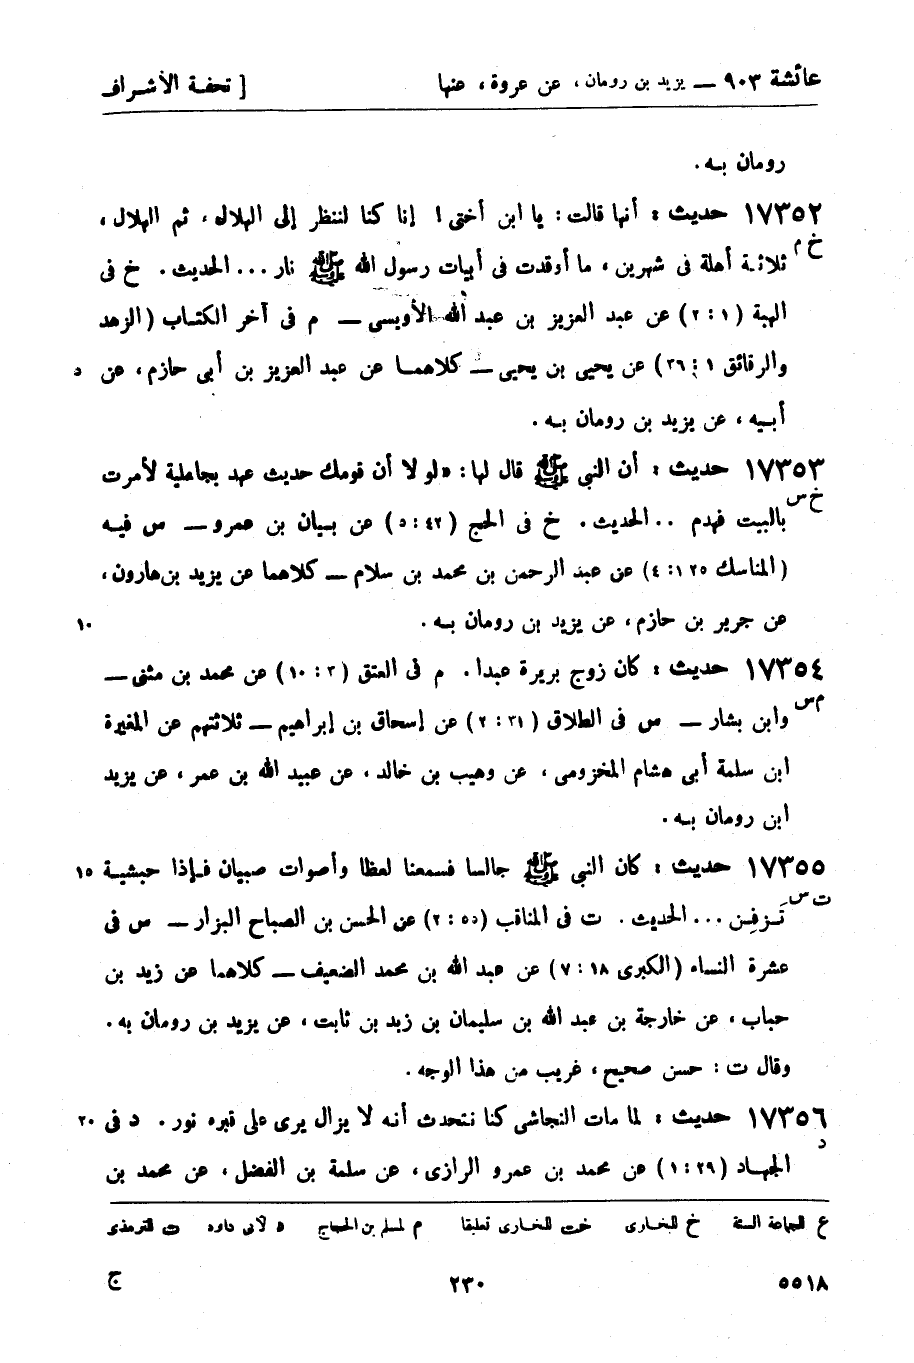 عائشة ٩٠٣ ــ يزيد بن رومان ، عن عروة ، عنها [ تحفة الأشراف
رومان به .
١٧٣٥٢ حديث : أنها قالت : يا ابن أختى ! إنا كنا لننظر إلى الهلال ، ثم الهلال ،
خ م
ثلاثة أهلة فى شهرين ، ما أوقدت فى أبيات رسول الله ﷺ نار ... الحديث . خ فى
الهبة (١ : ٢) عن عبد العزيز بن عبد الله الأويسى ــ م فى آخر الكتاب (الزهد
والرقائق ١ : ٢٦) عن يحيى بن يحيى ــ كلاهما عن عبد العزيز بن أبى حازم ، عن د
أبيه ، عن يزيد بن رومان به .
١٧٣٥٣ حديث : أن النبي ﷺ قال لها : «لو لا أن قومك حديث عهد بجاهلية لأمرت
خ س
بالبيت فهدم ... الحديث . خ فى الحج (٤٢ : ٥) عن بيان بن عمرو ــ س فيه
(المناسك ١٢٥ : ٤) عن عبد الرحمن بن محمد بن سلام ــ كلاهما عن يزيد بن هارون ،
عن جرير بن حازم ، عن يزيد بن رومان به . ١٠
١٧٣٥٤ حديث : كان زوج بريرة عبدا . م فى العتق (٣ : ١٠) عن محمد بن مثنى ــ
م س
وابن بشار ــ س فى الطلاق (٣١ : ٢) عن إسحاق بن إبراهيم ــ ثلاثتهم عن المغيرة
ابن سلمة أبى هشام المخزومى ، عن وهيب بن خالد ، عن عبيد الله بن عمر ، عن يزيد
ابن رومان به .
١٧٣٥٥ حديث : كان النبي ﷺ جالسا فسمعنا لغطا وأصوات صبيان فإذا حبشية ١٥
ت س
تَزفِن ... الحديث . ت فى المناقب (٥٥ : ٢) عن الحسن بن الصباح البزار ــ س فى
عشرة النساء (الكبرى ١٨ : ٧) عن عبد الله بن محمد الضعيف ــ كلاهما عن زيد بن
حباب ، عن خارجة بن عبد الله بن سليمان بن زيد بن ثابت ، عن يزيد بن رومان به .
وقال ت : حسن صحيح ، غريب من هذا الوجه .
١٧٣٥٦ حديث : لما مات النجاشى كنا نتحدث أنه لا يزال يرى على قبره نور . د فى ٢٠
د
الجهاد (٢٩ : ١) عن محمد بن عمرو الرازى ، عن سلمة بن الفضل ، عن محمد بن
ع للجماعة الستة خ للبخارى خت للبخارى تعليقا م لمسلم بن الحجاج د لأبى داود ت للترمذى
٥٥١٨ ٢٣٠ ج